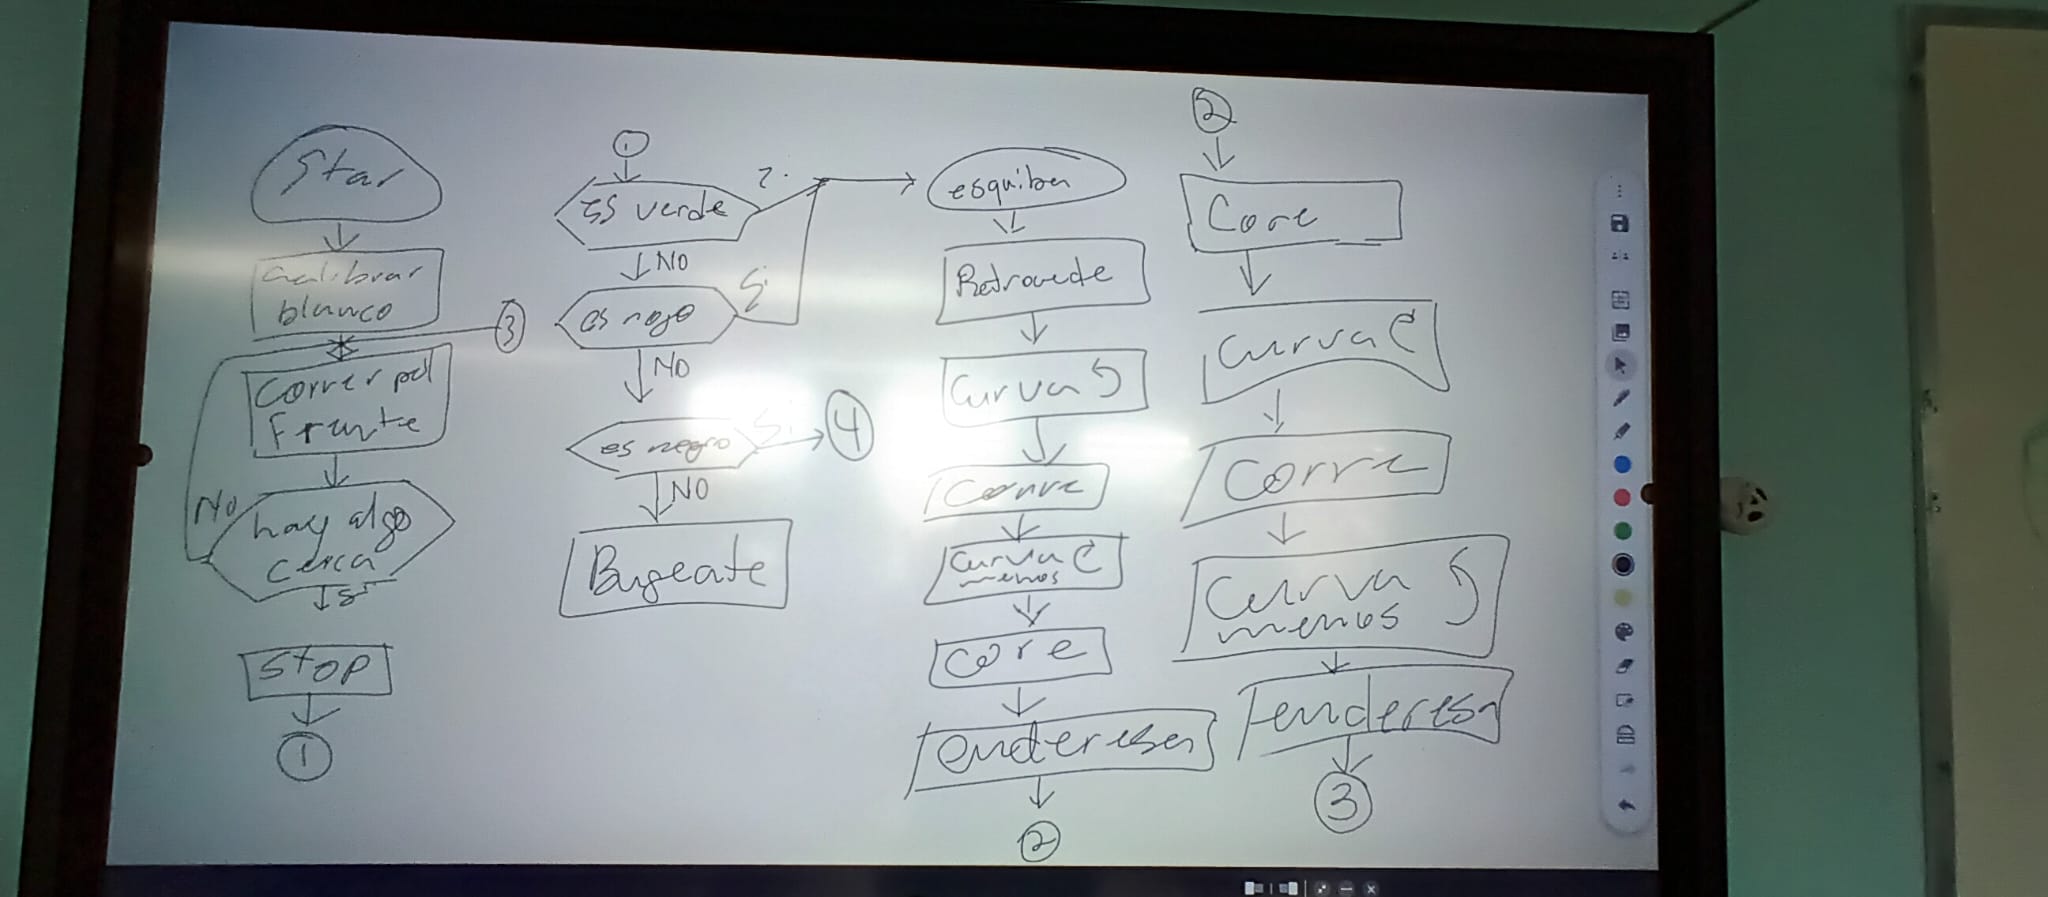 Star
calibrar
blanco
3
Correr pal
Frente
No
hay algo
cerca
si
STOP
1
1
ES verde
NO
es rojo
Si
NO
es negro
Si
4
NO
Bugeate
esquiba
Retrocede
Curva
Corre
Curva
menos
Core
endereza
2
2
Core
Curva
Corre
Curva
menos
Enderesa
3